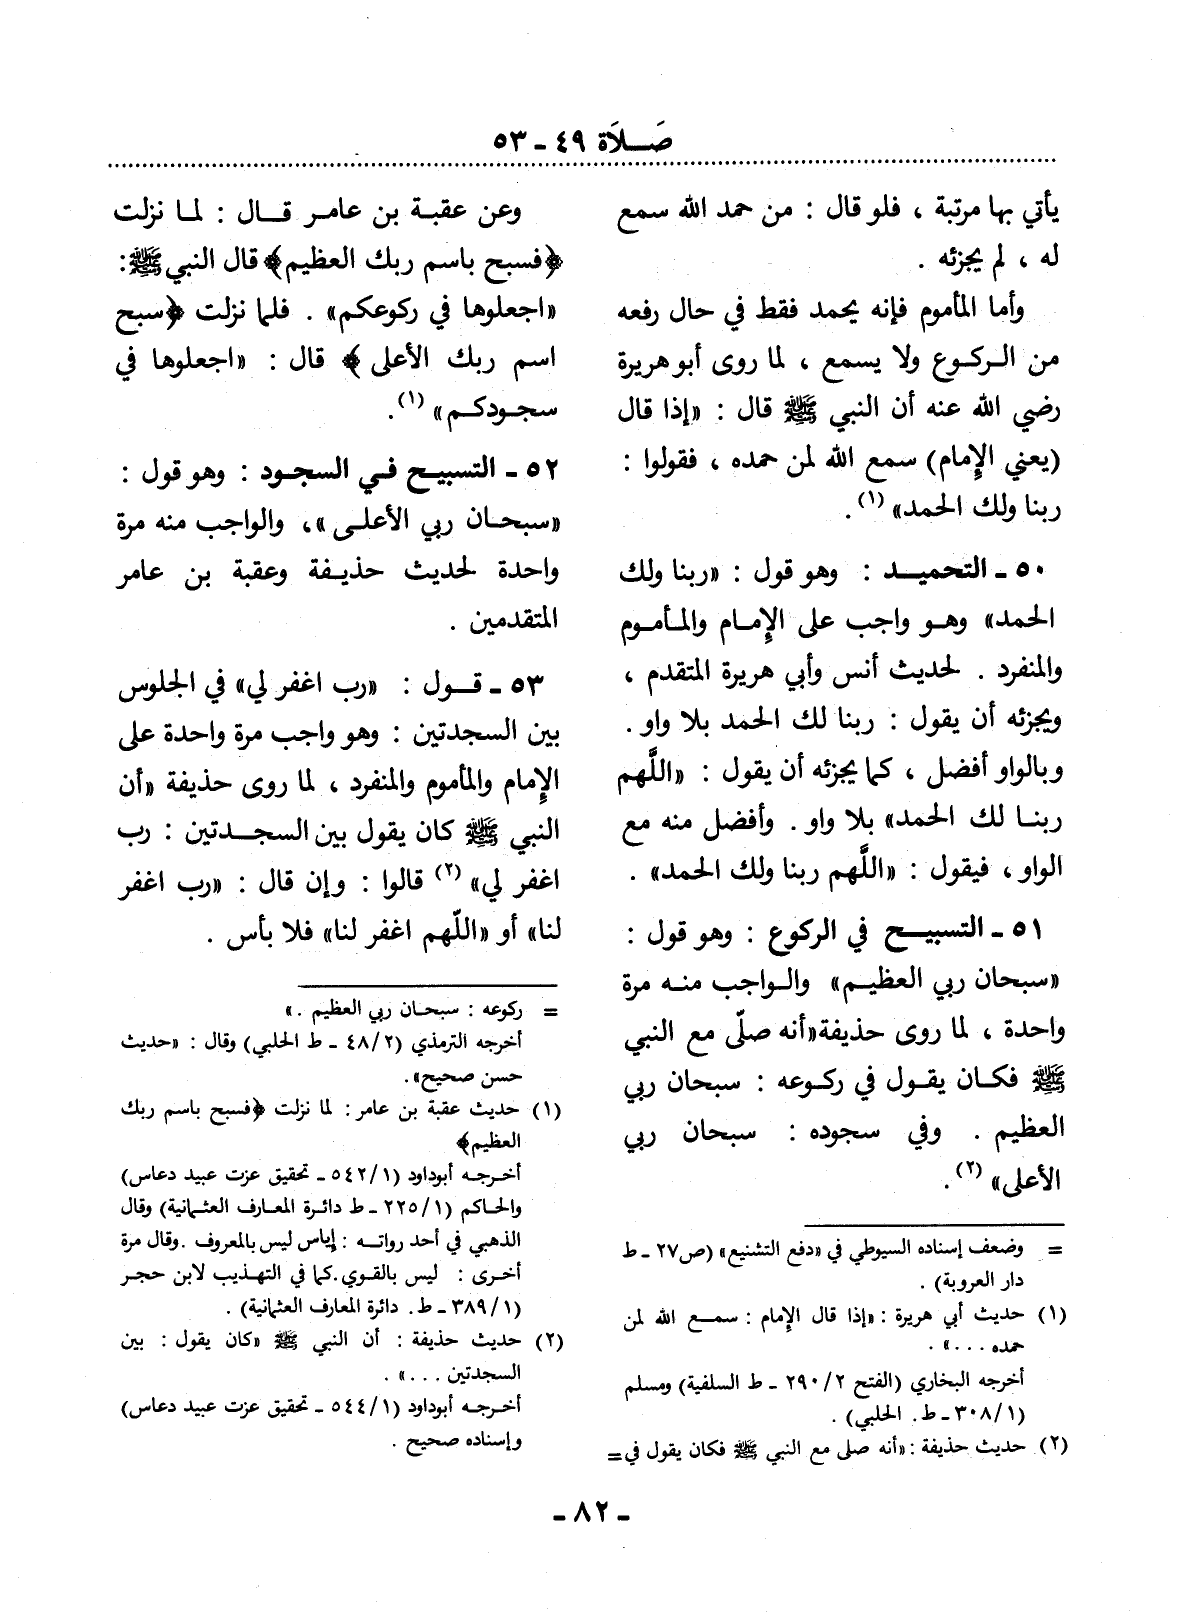 صَلَاة ٤٩ - ٥٣
يأتي بها مرتبة ، فلو قال : من حمد الله سمع
له ، لم يجزئه .
وأما المأموم فإنه يحمد فقط في حال رفعه
من الركوع ولا يسمع ، لما روى أبو هريرة
رضي الله عنه أن النبي ﷺ قال : «إذا قال
(يعني الإمام) سمع الله لمن حمده ، فقولوا :
ربنا ولك الحمد» (١).
٥٠ - التحميد : وهو قول : «ربنا ولك
الحمد» وهو واجب على الإمام والمأموم
والمنفرد . لحديث أنس وأبي هريرة المتقدم ،
ويجزئه أن يقول : ربنا لك الحمد بلا واو .
وبالواو أفضل ، كما يجزئه أن يقول : «اللَّهم
ربنا لك الحمد» بلا واو . وأفضل منه مع
الواو ، فيقول : «اللَّهم ربنا ولك الحمد» .
٥١ - التسبيح في الركوع : وهو قول :
«سبحان ربي العظيم» والواجب منه مرة
واحدة ، لما روى حذيفة «أنه صلّى مع النبي
ﷺ فكان يقول في ركوعه : سبحان ربي
العظيم . وفي سجوده : سبحان ربي
الأعلى» (٢).
= وضعف إسناده السيوطي في «دفع التشنيع» (ص٢٧ - ط
دار العروبة) .
(١) حديث أبي هريرة : «إذا قال الإمام : سمع الله لمن
حمده ...» .
أخرجه البخاري (الفتح ٢/ ٢٩٠ - ط السلفية) ومسلم
(١/ ٣٠٨ - ط. الحلبي) .
(٢) حديث حذيفة : «أنه صلى مع النبي ﷺ فكان يقول في =
وعن عقبة بن عامر قال : لما نزلت
﴿فسبح باسم ربك العظيم﴾ قال النبي ﷺ:
«اجعلوها في ركوعكم» . فلما نزلت ﴿سبح
اسم ربك الأعلى﴾ قال : «اجعلوها في
سجودكم» (١).
٥٢ - التسبيح في السجود : وهو قول :
«سبحان ربي الأعلى» ، والواجب منه مرة
واحدة لحديث حذيفة وعقبة بن عامر
المتقدمين .
٥٣ - قول : «رب اغفر لي» في الجلوس
بين السجدتين : وهو واجب مرة واحدة على
الإمام والمأموم والمنفرد ، لما روى حذيفة «أن
النبي ﷺ كان يقول بين السجدتين : رب
اغفر لي» (٢) قالوا : وإن قال : «رب اغفر
لنا» أو «اللّهم اغفر لنا» فلا بأس .
= ركوعه : سبحان ربي العظيم .»
أخرجه الترمذي (٢/ ٤٨ - ط الحلبي) وقال : «حديث
حسن صحيح».
(١) حديث عقبة بن عامر : لما نزلت ﴿فسبح باسم ربك
العظيم﴾
أخرجه أبوداود (١/ ٥٤٢ - تحقيق عزت عبيد دعاس)
والحاكم (١/ ٢٢٥ - ط دائرة المعارف العثمانية) وقال
الذهبي في أحد رواته : إياس ليس بالمعروف .وقال مرة
أخرى : ليس بالقوي.كما في التهذيب لابن حجر
(١/ ٣٨٩ - ط. دائرة المعارف العثمانية) .
(٢) حديث حذيفة : أن النبي ﷺ «كان يقول : بين
السجدتين ...» .
أخرجه أبوداود (١/ ٥٤٤ - تحقيق عزت عبيد دعاس)
وإسناده صحيح .
- ٨٢ -